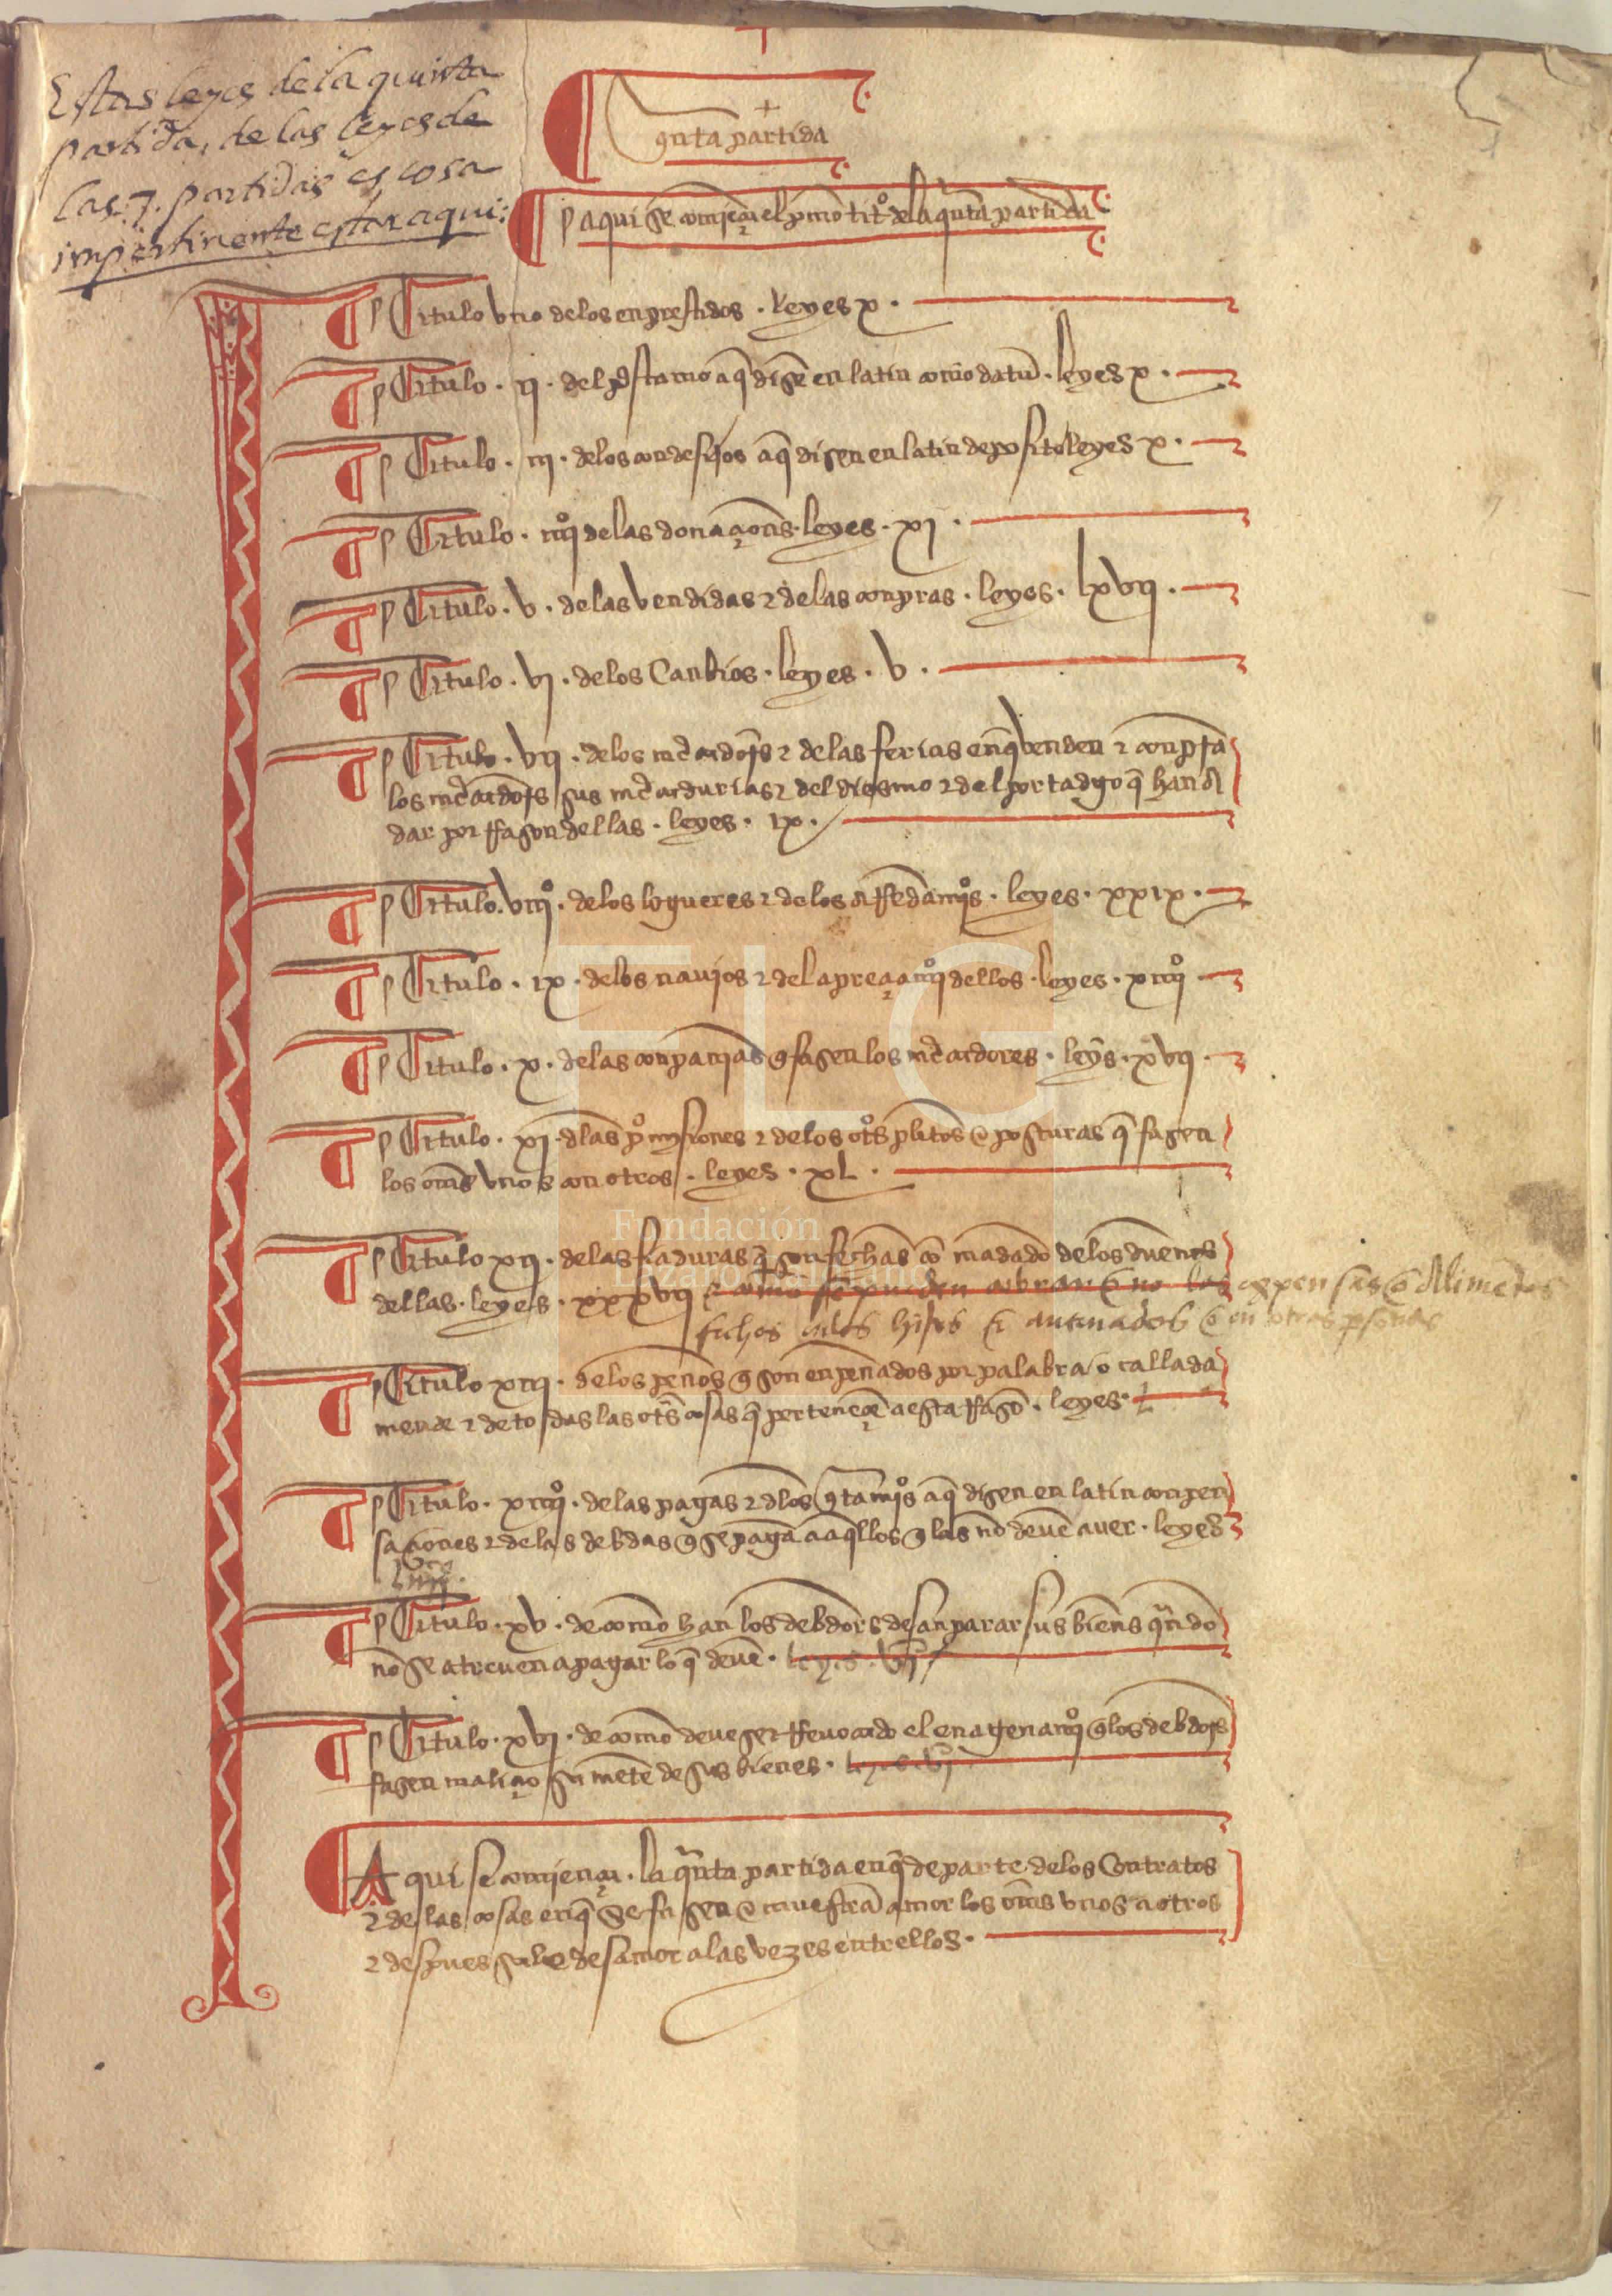 Estas leyes de la quinta
partida, de las leyes de
las .7. partidas es cosa
impertinente estar aqui:
qnta partida
aqui se comiença el pmo titº de la qnta partida
Titulo vno delos enprestidos . leyes x .
Titulo . ij . del pstamo a q̃ disẽ en latin comodatũ . leyes x .
Titulo . iij . delos condesijos a q̃ disen en latin deposito leyes x .
Titulo . iiijº delas donaçoñs . leyes . xj .
Titulo . v . delas vendidas ⁊ delas conpras . leyes . lxvij .
Titulo . vj . delos Canbios . leyes . v .
Titulo . vij . delos mc̃adors ⁊ delas ferias en q̃ venden ⁊ conpra
los mc̃adors sus mc̃adurias ⁊ del diesmo ⁊ del portadgo q̃ han d
dar por rrason dellas . leyes . ix .
Titulo . viijº . delos logueres ⁊ delos arrẽdamiº̃s . leyes . xxix .
Titulo . ix . delos nauios ⁊ del apreçiamiº dellos . leyes . xiiijº
Titulo . x . delas conpanias q̃ fasen los mc̃adores . leys . xvij .
Titulo . xj . dlas pºmisiones ⁊ delos otºs plitos ⁊ posturas q̃ fasen
los oms̃ vnos con otros . leyes . xL .
Titulo xij . delas fiaduras q̃ son fechas cõ mãdado delos duenos
dellas . leyes . xxxvij ⁊ como se pueden cobrar ⁊ no las expensas ⁊ Alimẽtos
fichos enlos hijos ⁊ antenados ⁊ en otras psonas
Titulo xiij . delos penos q̃ son enpenados por palabra o callada
mente ⁊ de todas las otr̃s cosas q̃ pertenesçẽ a esta rrasõ . leyes . L
Titulo . xiiijº . delas pagas ⁊ dlos qtamiºs a q̃ disen en latin conpen
saçiones ⁊ delas debdas q̃ se pagã a aq̃llos q̃ las nõ deuẽ auer . leyes
Liiijº .
Titulo . xv . de como han los debdors desanparar sus bienes qndo
nõ se atreuen a pagar lo q̃ deuẽ . leyes . vj
Titulo . xvj . de como deue ser rreuocado el enagenamiº q̃ los debdors
fasen maliçiosa mẽte de sus bienes . leyes . vj
Aqui se comiença . la qnta partida en q̃ departe delos Contratos
⁊ delas cosas en q̃ se fasen ⁊ muestrã amor los oms̃ vnos a otros
⁊ despues sale desamor a las vezes entrellos .
Fundación
FLG